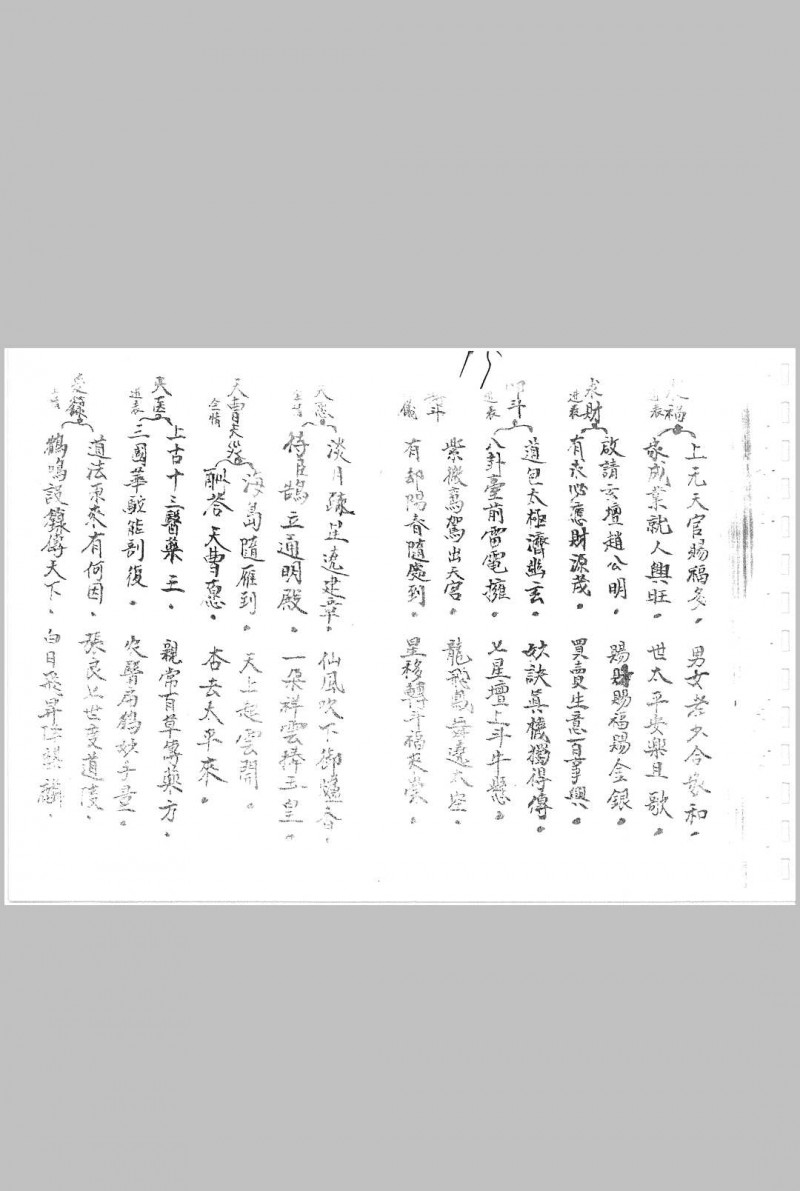 福
進表
上元天官賜福多。男女老少合家和。
家成業就人興旺。世太平安樂且歌
求財
進表
啟請玄壇趙公明。賜賜福賜金銀。
有求必應財源茂。買賣生意百事興。
斗
進表
道包太極濟幽玄。妙訣真機獨得傳。
八卦臺前雷電擁。七星壇上斗牛懸。
斗
儀
紫微鸞駕出天宮。龍飛鳳舞遶太空。
有却陽春隨處到。星移轉斗福來崇。
淡月疏星遶建章。仙風吹下御爐香。
侍臣鵠立通明殿。一朵祥雲捧玉皇。
天曹
海島隨雁到。天上起雲開。
酬答天曹恩。否去太平來。
天醫
進表
上古十三醫藥王。親常百草傳藥方。
三國華鮫能剖復。次醫扁鶴妙手量。
籙
道法原來有何因。張良七世度道陵。
鶴鳴設籙傳天下。白日飛昇 麟。